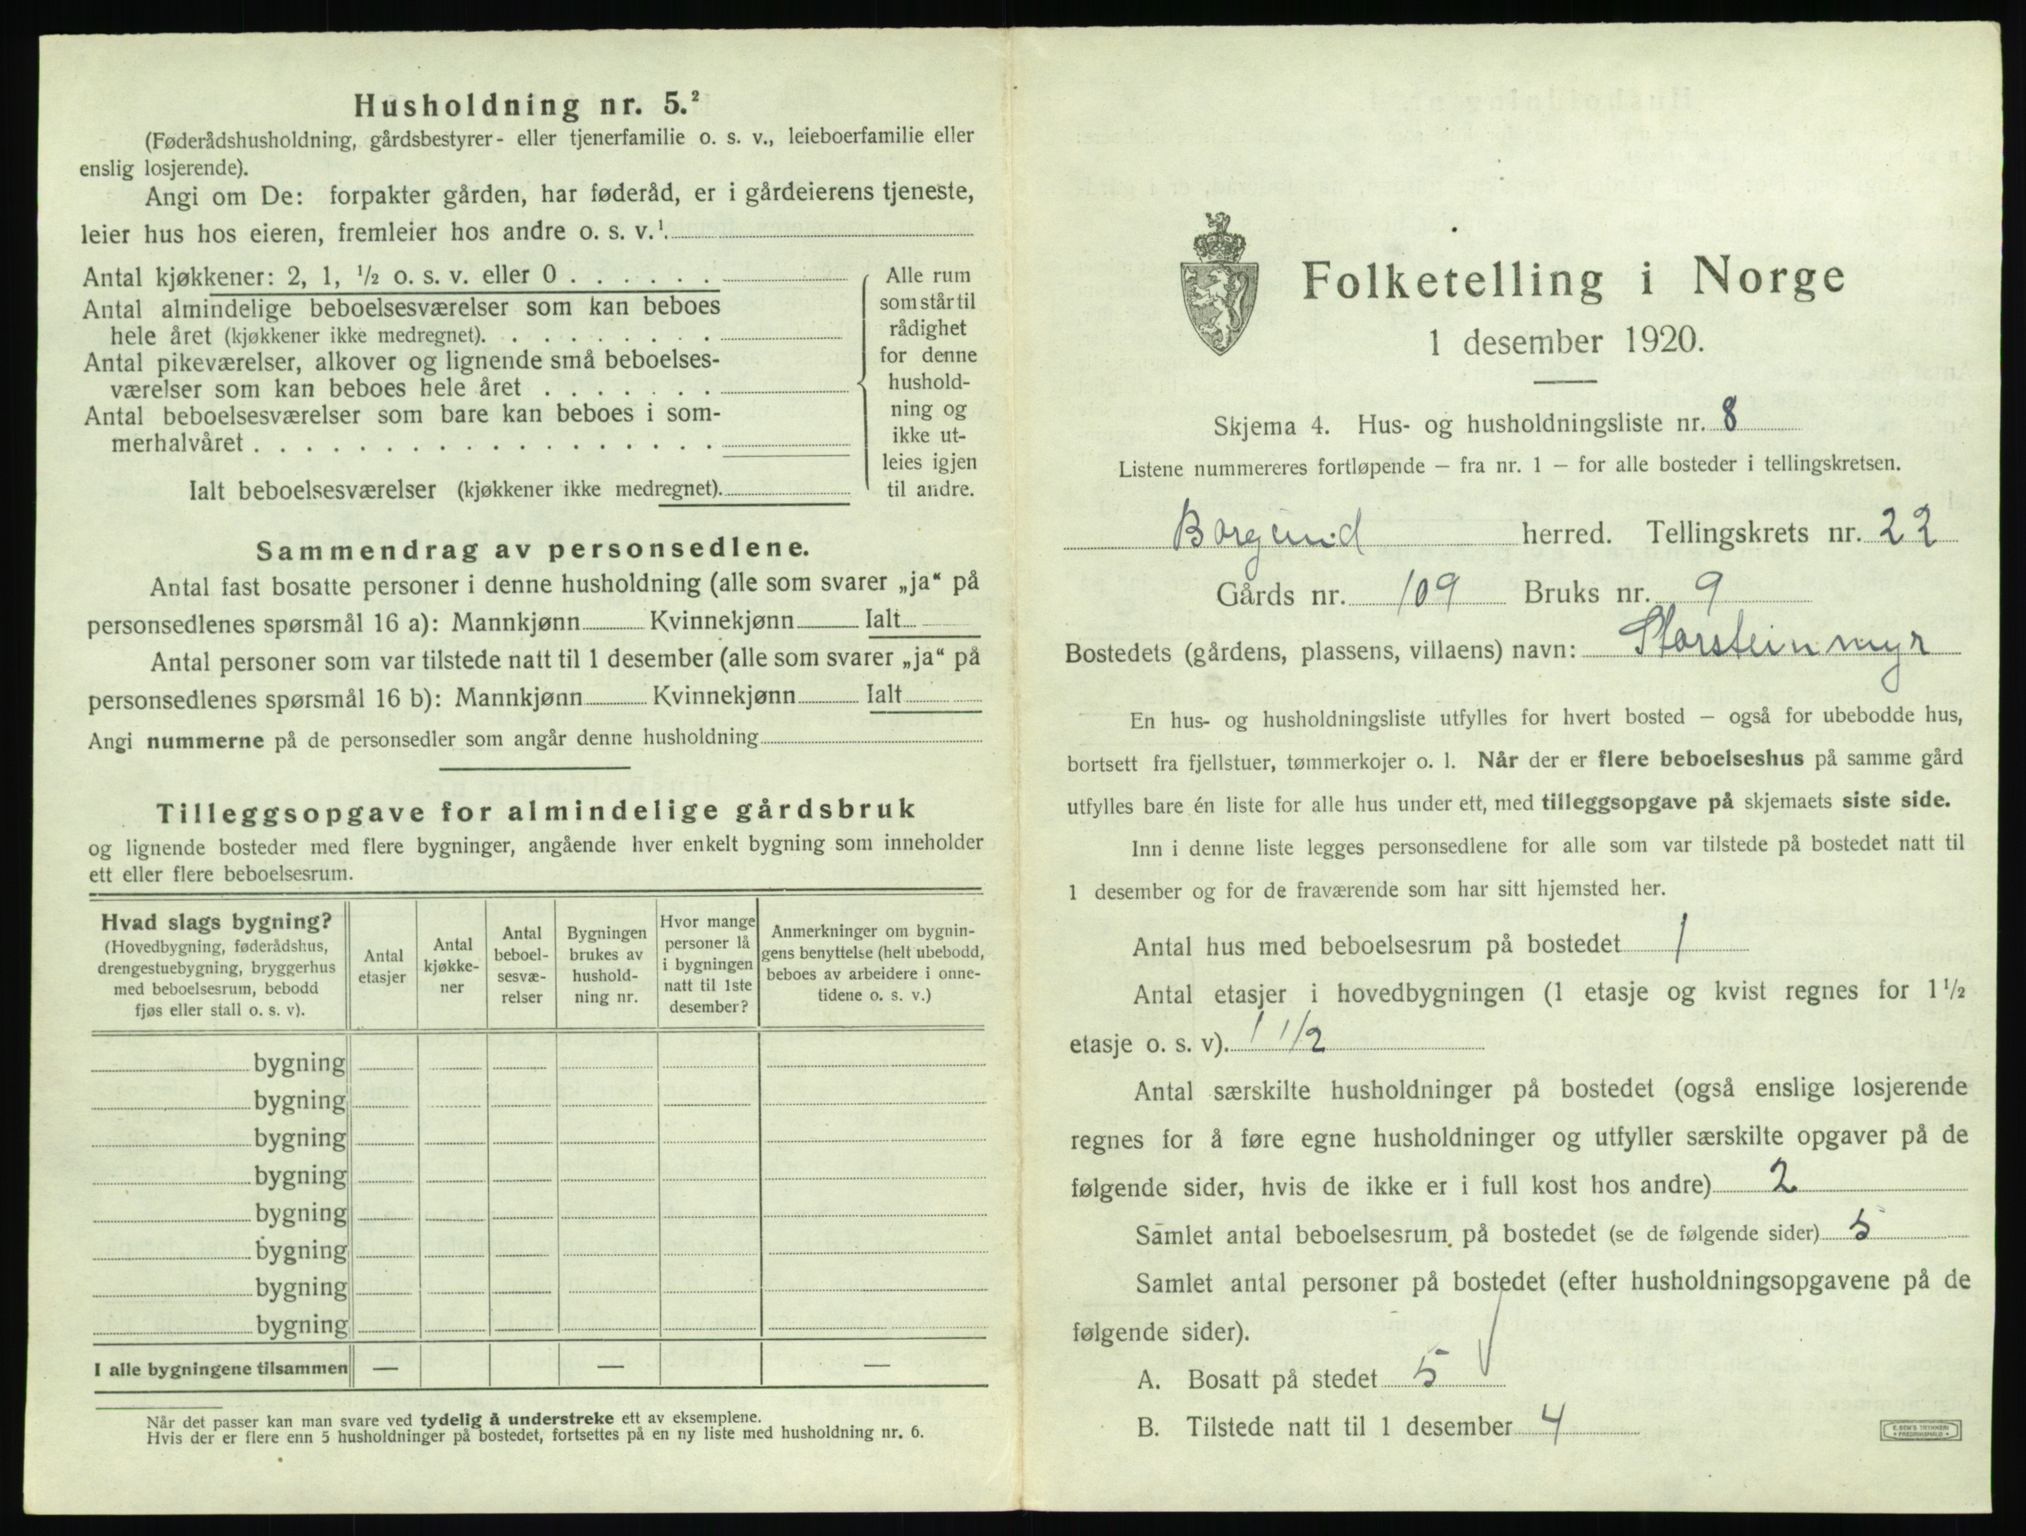 Husholdning nr. 5.²
(Føderådshusholdning, gårdsbestyrer- eller tjenerfamilie o. s. v., leieboerfamilie eller
enslig losjerende).
Angi om De: forpakter gården, har føderåd, er i gårdeierens tjeneste,
leier hus hos eieren, fremleier hos andre o. s. v.¹.
Antal kjøkkener: 2, 1, ½ o. s. v. eller 0 . . . . . .
Antal almindelige beboelsesværelser som kan beboes
hele året (kjøkkener ikke medregnet). . . . . . . . .
Antal pikeværelser, alkover og lignende små beboelses-
værelser som kan beboes hele året . . . . . . .
Antal beboelsesværelser som bare kan beboes i som-
merhalvåret . . . . . . . . . . . . . . . . . .
Ialt beboelsesværelser (kjøkkener ikke medregnet).
Alle rum
som står til
rådighet
for denne
hushold-
ning og
ikke ut-
leies igjen
til andre.
Sammendrag av personsedlene.
Antal fast bosatte personer i denne husholdning (alle som svarer „ja“ på
personsedlenes spørsmål 16 a): Mannkjønn Kvinnekjønn Ialt
Antal personer som var tilstede natt til 1 desember (alle som svarer „ja“ på
personsedlenes spørsmål 16 b): Mannkjønn Kvinnekjønn Ialt
Angi nummerne på de personsedler som angår denne husholdning
Tilleggsopgave for almindelige gårdsbruk
og lignende bosteder med flere bygninger, angående hver enkelt bygning som inneholder
ett eller flere beboelsesrum.
Hvad slags bygning?
(Hovedbygning, føderådshus,
drengestuebygning, bryggerhus
med beboelsesrum, bebodd
fjøs eller stall o. s. v).
Antal
etasjer
Antal
kjøkke-
ner
Antal
beboel-
sesvæ-
relser
Bygningen
brukes av
hushold-
ning nr.
Hvor mange
personer lå
i bygningen
natt til 1ste
desember?
Anmerkninger om bygnin-
gens benyttelse (helt ubebodd,
beboes av arbeidere i onne-
tidene o. s. v.)
bygning
bygning
bygning
bygning
bygning
bygning
bygning
bygning
I alle bygningene tilsammen — — —
Når det passer kan man svare ved tydelig å understreke ett av eksemplene.
Hvis der er flere enn 5 husholdninger på bostedet, fortsettes på en ny liste med husholdning nr. 6.
Folketelling i Norge
1 desember 1920.
Skjema 4. Hus- og husholdningsliste nr. 8
Listene nummereres fortløpende – fra nr. 1 – for alle bosteder i tellingskretsen.
Borgund herred. Tellingskrets nr. 22
Gårds nr. 109 Bruks nr. 9
Bostedets (gårdens, plassens, villaens) navn: Storsteinmyr
En hus- og husholdningsliste utfylles for hvert bosted – også for ubebodde hus,
bortsett fra fjellstuer, tømmerkojer o. l. Når der er flere beboelseshus på samme gård
utfylles bare én liste for alle hus under ett, med tilleggsopgave på skjemaets siste side.
Inn i denne liste legges personsedlene for alle som var tilstede på bostedet natt til
1 desember og for de fraværende som har sitt hjemsted her.
Antal hus med beboelsesrum på bostedet 1
Antal etasjer i hovedbygningen (1 etasje og kvist regnes for 1½
etasje o. s. v). 1 1/2
Antal særskilte husholdninger på bostedet (også enslige losjerende
regnes for å føre egne husholdninger og utfyller særskilte opgaver på de
følgende sider, hvis de ikke er i full kost hos andre) 2
Samlet antal beboelsesrum på bostedet (se de følgende sider) 5
Samlet antal personer på bostedet (efter husholdningsopgavene på de
følgende sider).
A. Bosatt på stedet 5
B. Tilstede natt til 1 desember 4